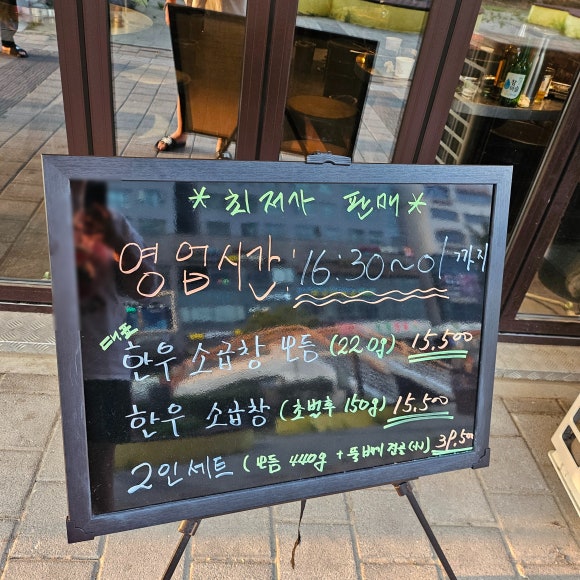 * 최저가 판매 *
영업시간: 16:30~01까지
대표
한우 소곱창 모듬 (220g) 15,500
한우 소곱창 (초벌후 150g) 15,500
2인세트 (모듬 440g + 뚝배기 (小)) 39,500